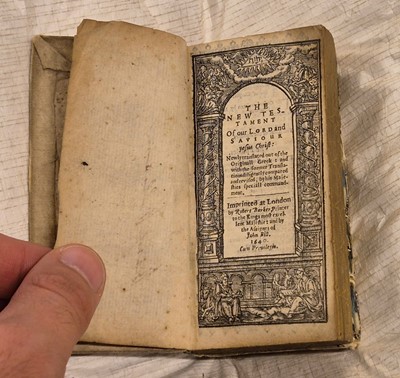 THE
NEW TES-
TAMENT
Of our LORD and
SAVIOUR
Jesus Christ:
Newly translated out of the
Originall Greek: and
with the former Transla-
tions diligently compared
and revised, by his Maje-
sties speciall command-
ment.
Imprinted at London
by Robert Barker, Printer
to the Kings most excel-
lent Majestie: and by
the Assignes of
John Bill.
1640.
Cum Privilegio.